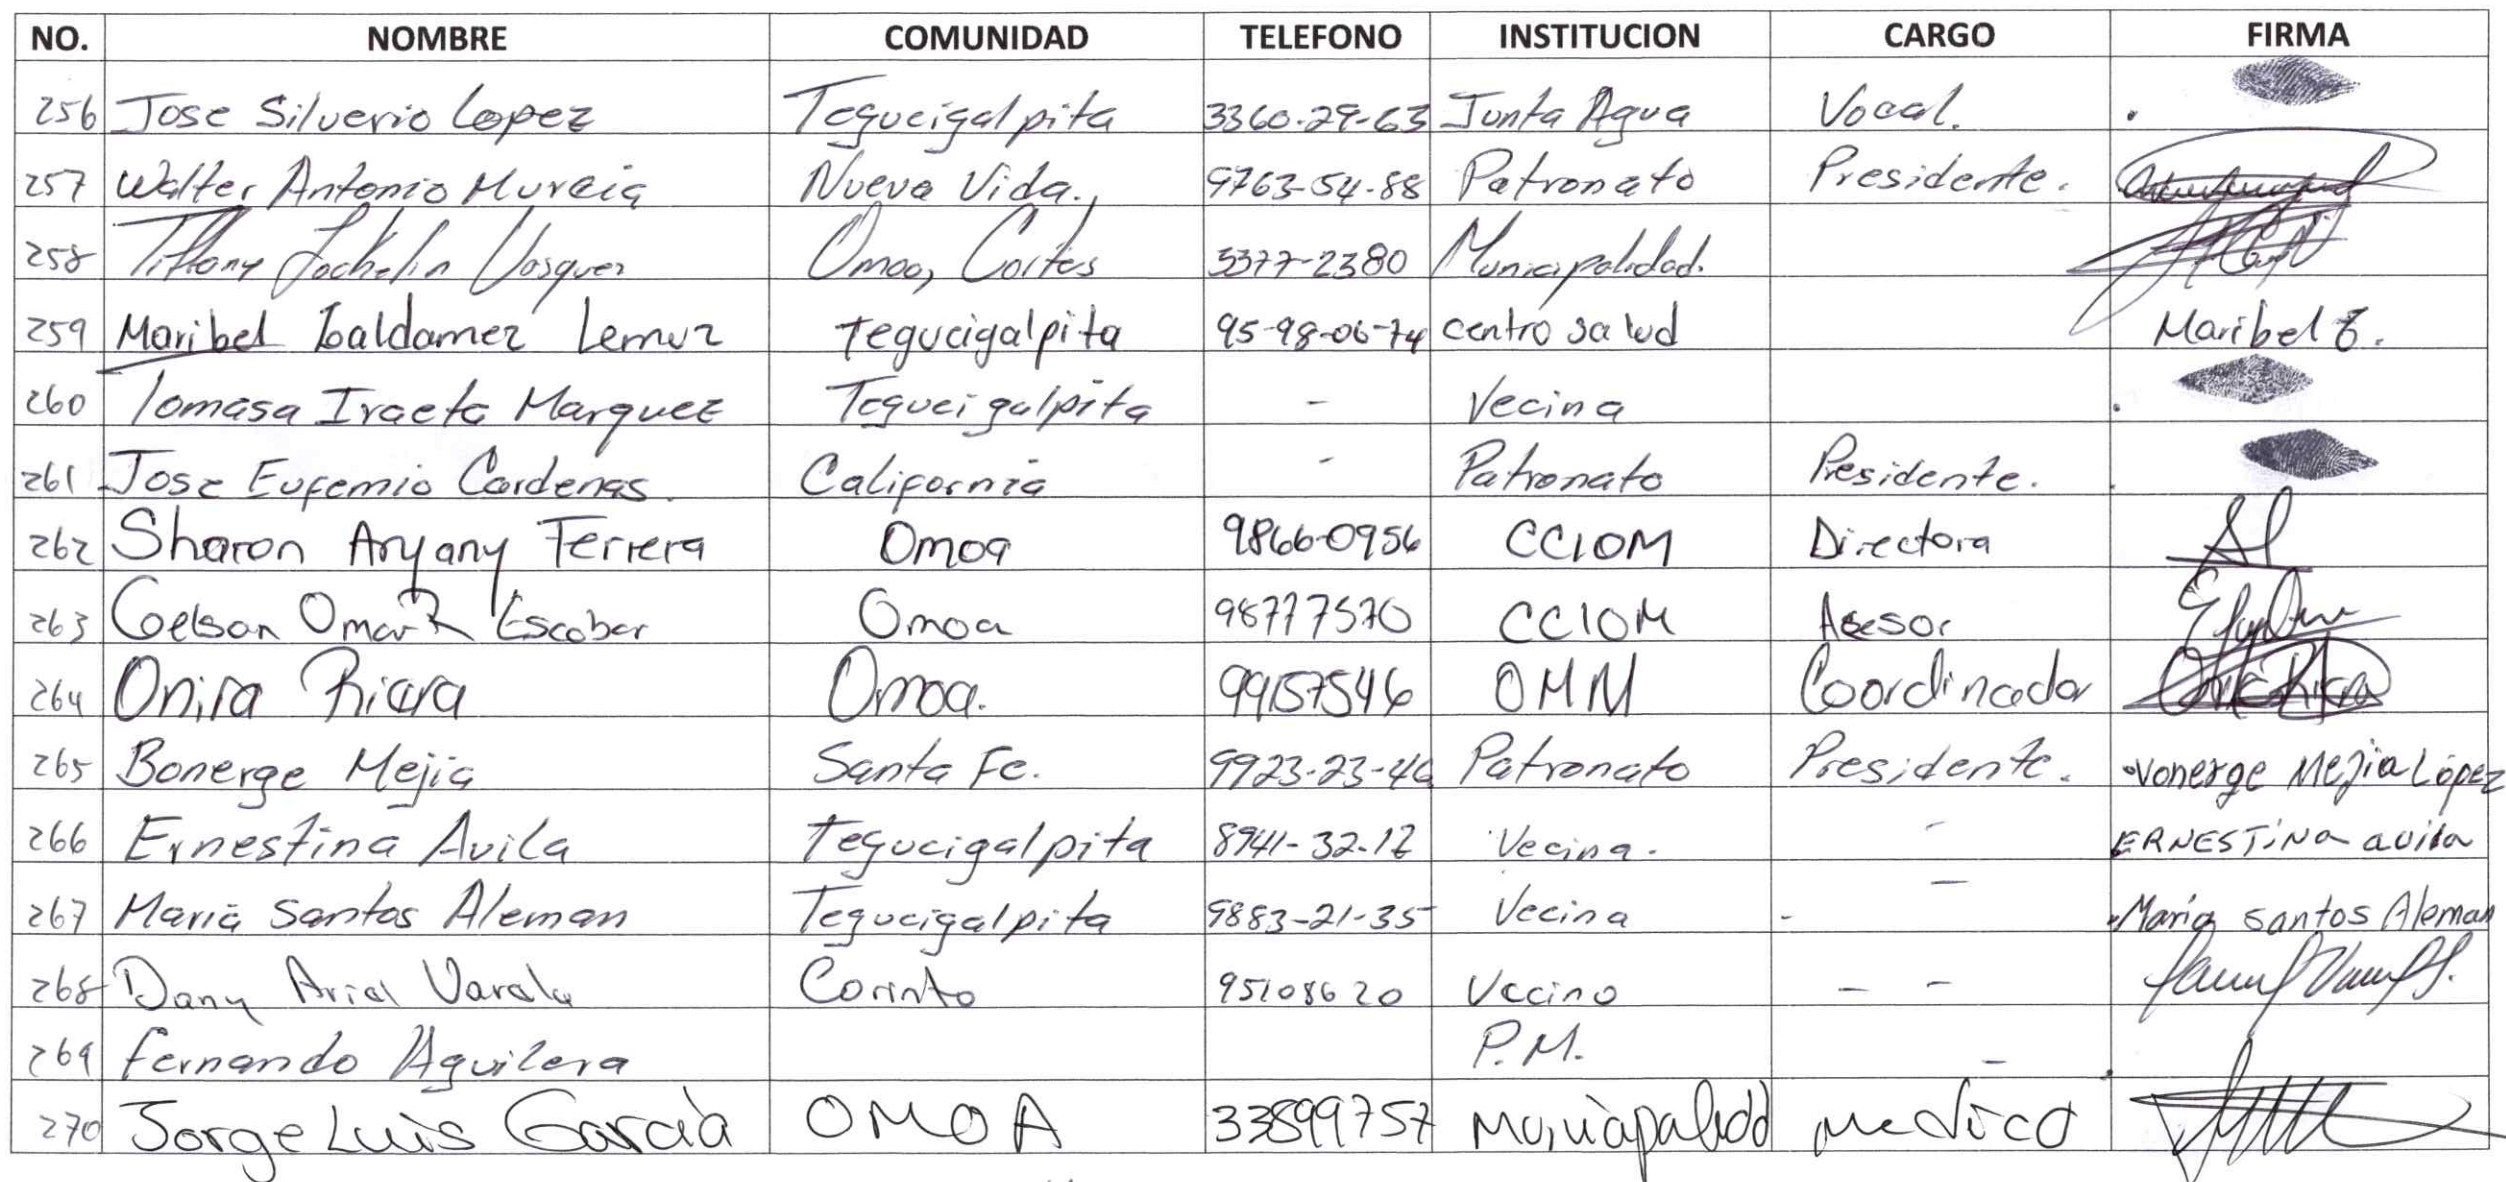 NO. NOMBRE COMUNIDAD TELEFONO INSTITUCION CARGO FIRMA
256 Jose Silverio Lopez Tegucigalpita 3360-29-63 Junta Agua Vocal.
257 Walter Antonio Murcia Nueva Vida. 9763-54-88 Patronato Presidente.
258 Tiffany Jockelin Vasquez Omoa, Cortes 3377-2380 Municipalidad.
259 Maribel Galdamez Lemuz Tegucigalpita 95-98-06-74 centro salud Maribel G.
260 Tomasa Iraeta Marquez Tegucigalpita - Vecina
261 Jose Eufemio Cardenas. California - Patronato Presidente.
262 Sharon Aryany Ferrera Omoa 9866-0956 CCIOM Directora
263 Gelson Omar R Escobar Omoa 98777570 CCIOM Asesor
264 Onira Riera Omoa. 99157546 OMM Coordinadora
265 Bonerge Mejia Santa Fe. 9923-23-46 Patronato Presidente. Vonerge Mejia López
266 Ernestina Avila Tegucigalpita 8941-32-12 Vecina. - ERNESTiNa avila
267 Maria Santos Aleman Tegucigalpita 9883-21-35 Vecina - - Maria Santos Aleman
268 Dany Ariel Varela Corinto 95108620 Vecino - -
269 Fernando Aguilera P.M. -
270 Jorge Luis García OMOA 33899757 Municipalidad Medico